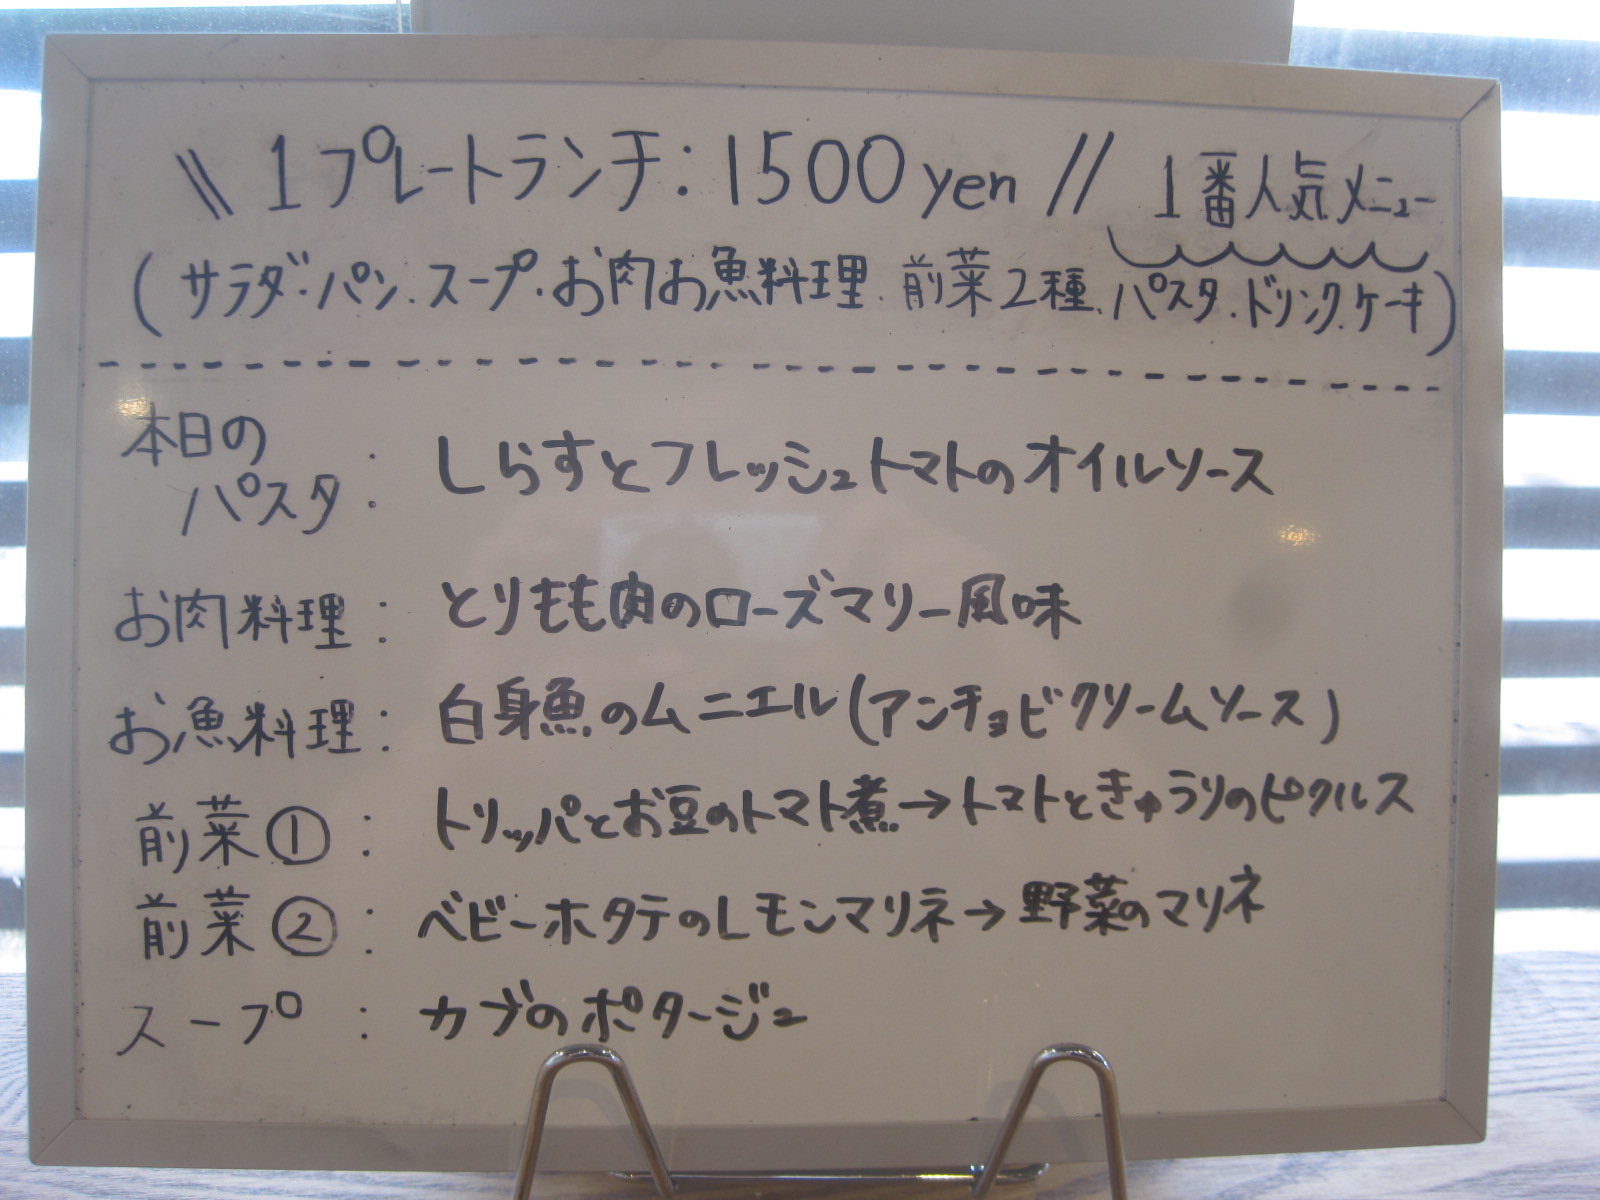 \\ 1プレートランチ：1500yen // 1番人気メニュー
(サラダ・パン・スープ・お肉お魚料理・前菜2種・パスタ・ドリンク・ケーキ)
本日の
パスタ：しらすとフレッシュトマトのオイルソース
お肉料理：とりもも肉のローズマリー風味
お魚料理：白身魚のムニエル(アンチョビクリームソース)
前菜①：トリッパとお豆のトマト煮→トマトときゅうりのピクルス
前菜②：ベビーホタテのレモンマリネ→野菜のマリネ
スープ：カブのポタージュ